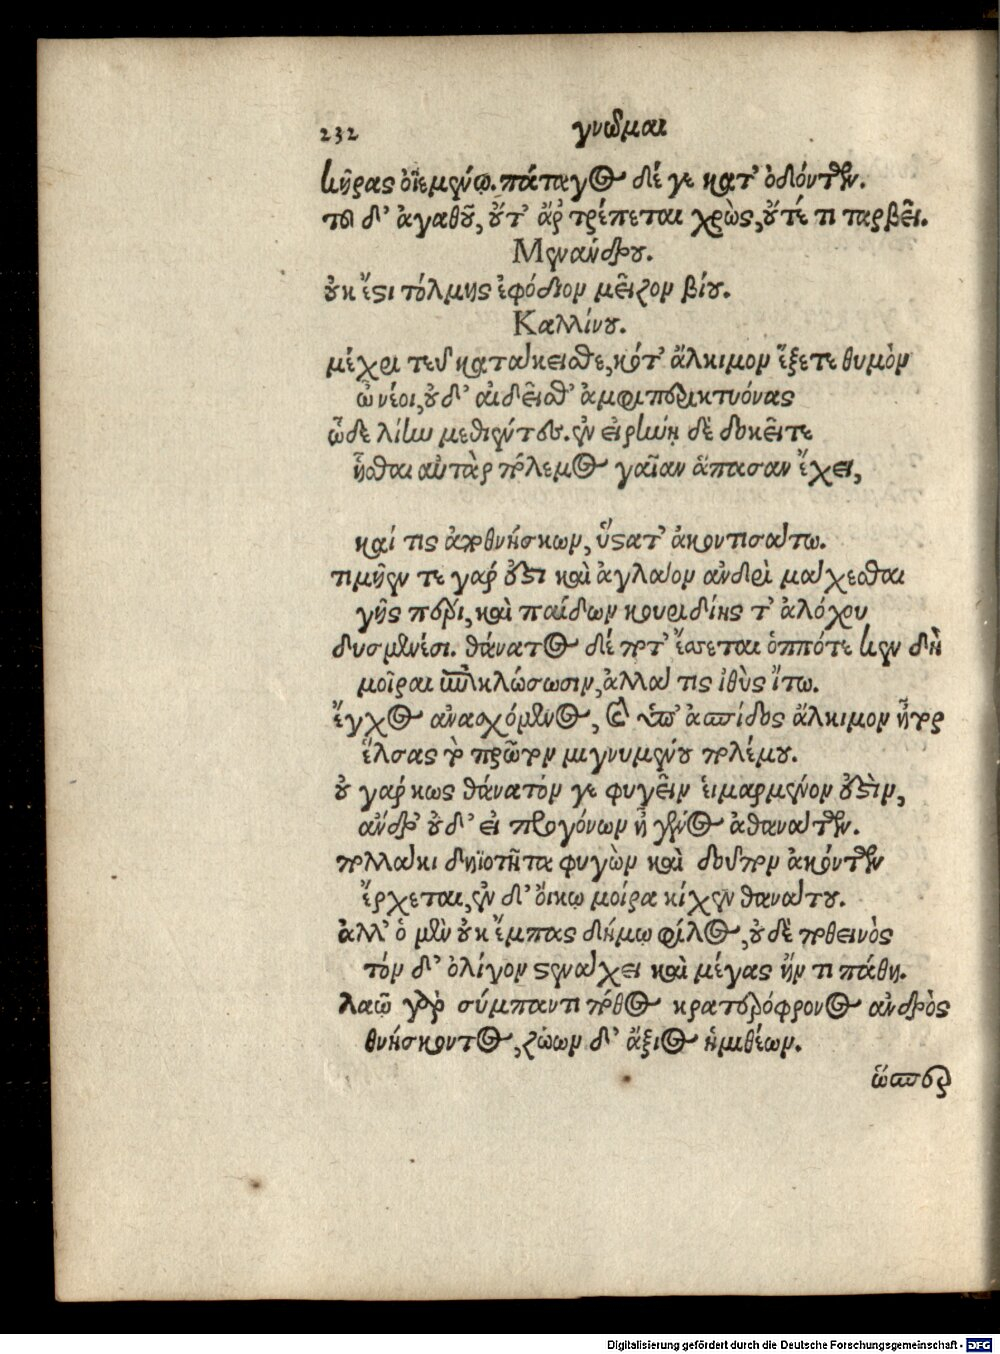 232 γνῶμαι
κῆρας ὀϊεμένῳ. πάταγος δέ γε κατ' ὀδόντων.
τοῦ δ' ἀγαθοῦ, οὔτ' ἄρ τρέπεται χρὼς, οὔτέ τι ταρβεῖ.
Μενάνδρου.
οὐκ ἔστι τόλμης ἐφόδιον μεῖζον βίου.
Καλλίνου.
μέχρι τεῦ κατάκεισθε, κότ' ἄλκιμον ἕξετε θυμὸν
ὦ νέοι, οὐδ' αἰδεῖσθ' ἀμφιπερικτυόνας
ὧδε λίην μεθιέντες. ἐν εἰρήνῃ δὲ δοκεῖτε
ἧσθαι αὐτὰρ πόλεμος γαῖαν ἅπασαν ἔχει,
καί τις ἀποθνήσκων, ὕστατ' ἀκοντισάτω.
τιμῆεν τε γάρ ὅστι καὶ ἀγλαὸν ἀνδρὶ μάχεσθαι
γῆς πέρι, καὶ παίδων κουριδίης τ' ἀλόχου
δυσμενέσι. θάνατος δέ ποτ' ἔσσεται ὁππότε κεν δὴ
μοῖραι ἐπικλώσωσιν, ἀλλά τις ἰθὺς ἴτω.
ἔγχος ἀνασχόμενος, καὶ ὑπ' ἀσπίδος ἄλκιμον ἦτορ
ἔλσας τὸ πρῶτον μιγνυμένου πολέμου.
οὐ γάρ κως θάνατόν γε φυγεῖν εἱμαρμένον ἐστὶν,
ἄνδρ' οὐδ' εἰ προγόνων ᾖ γένος ἀθανάτων.
πολλάκι δηϊοτῆτα φυγὼν καὶ δοῦπον ἀκόντων
ἔρχεται, ἐν δ' οἴκῳ μοίρα κίχεν θανάτου.
ἀλλ' ὁ μὲν οὐκ ἔμπας δήμῳ φίλος, οὐδὲ ποθεινὸς
τόν δ' ὀλίγον στενάχει καὶ μέγας ἤν τι πάθῃ.
λαῷ γὰρ σύμπαντι πόθος κρατερόφρονος ἀνδρὸς
θνήσκοντος, ζώων δ' ἄξιος ἡμιθέων.
ὥσπερ
Digitalisierung gefördert durch die Deutsche Forschungsgemeinschaft - DFG